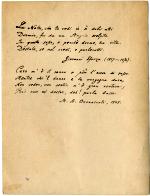 La Notte, che tu vedi in sì dolci atti
Dormire, fu da un Angelo scolpita
In questo sasso, e perchè dorme, ha vita:
Destala, se nol credi, e parleratti.
Giovanni Strozzi
Caro m'è il sonno e più l'esser di sasso,
Mentre che 'l danno e la vergogna dura,
Non veder, non sentir m'è gran ventura;
Però non mi destar, deh! parla basso.
M. A. Buonarroti, 1545.